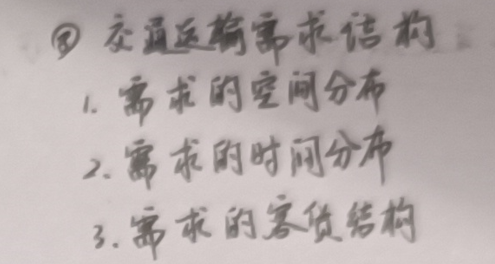 ③ 交通运输需求结构
1. 需求的空间分布
2. 需求的时间分布
3. 需求的客货结构